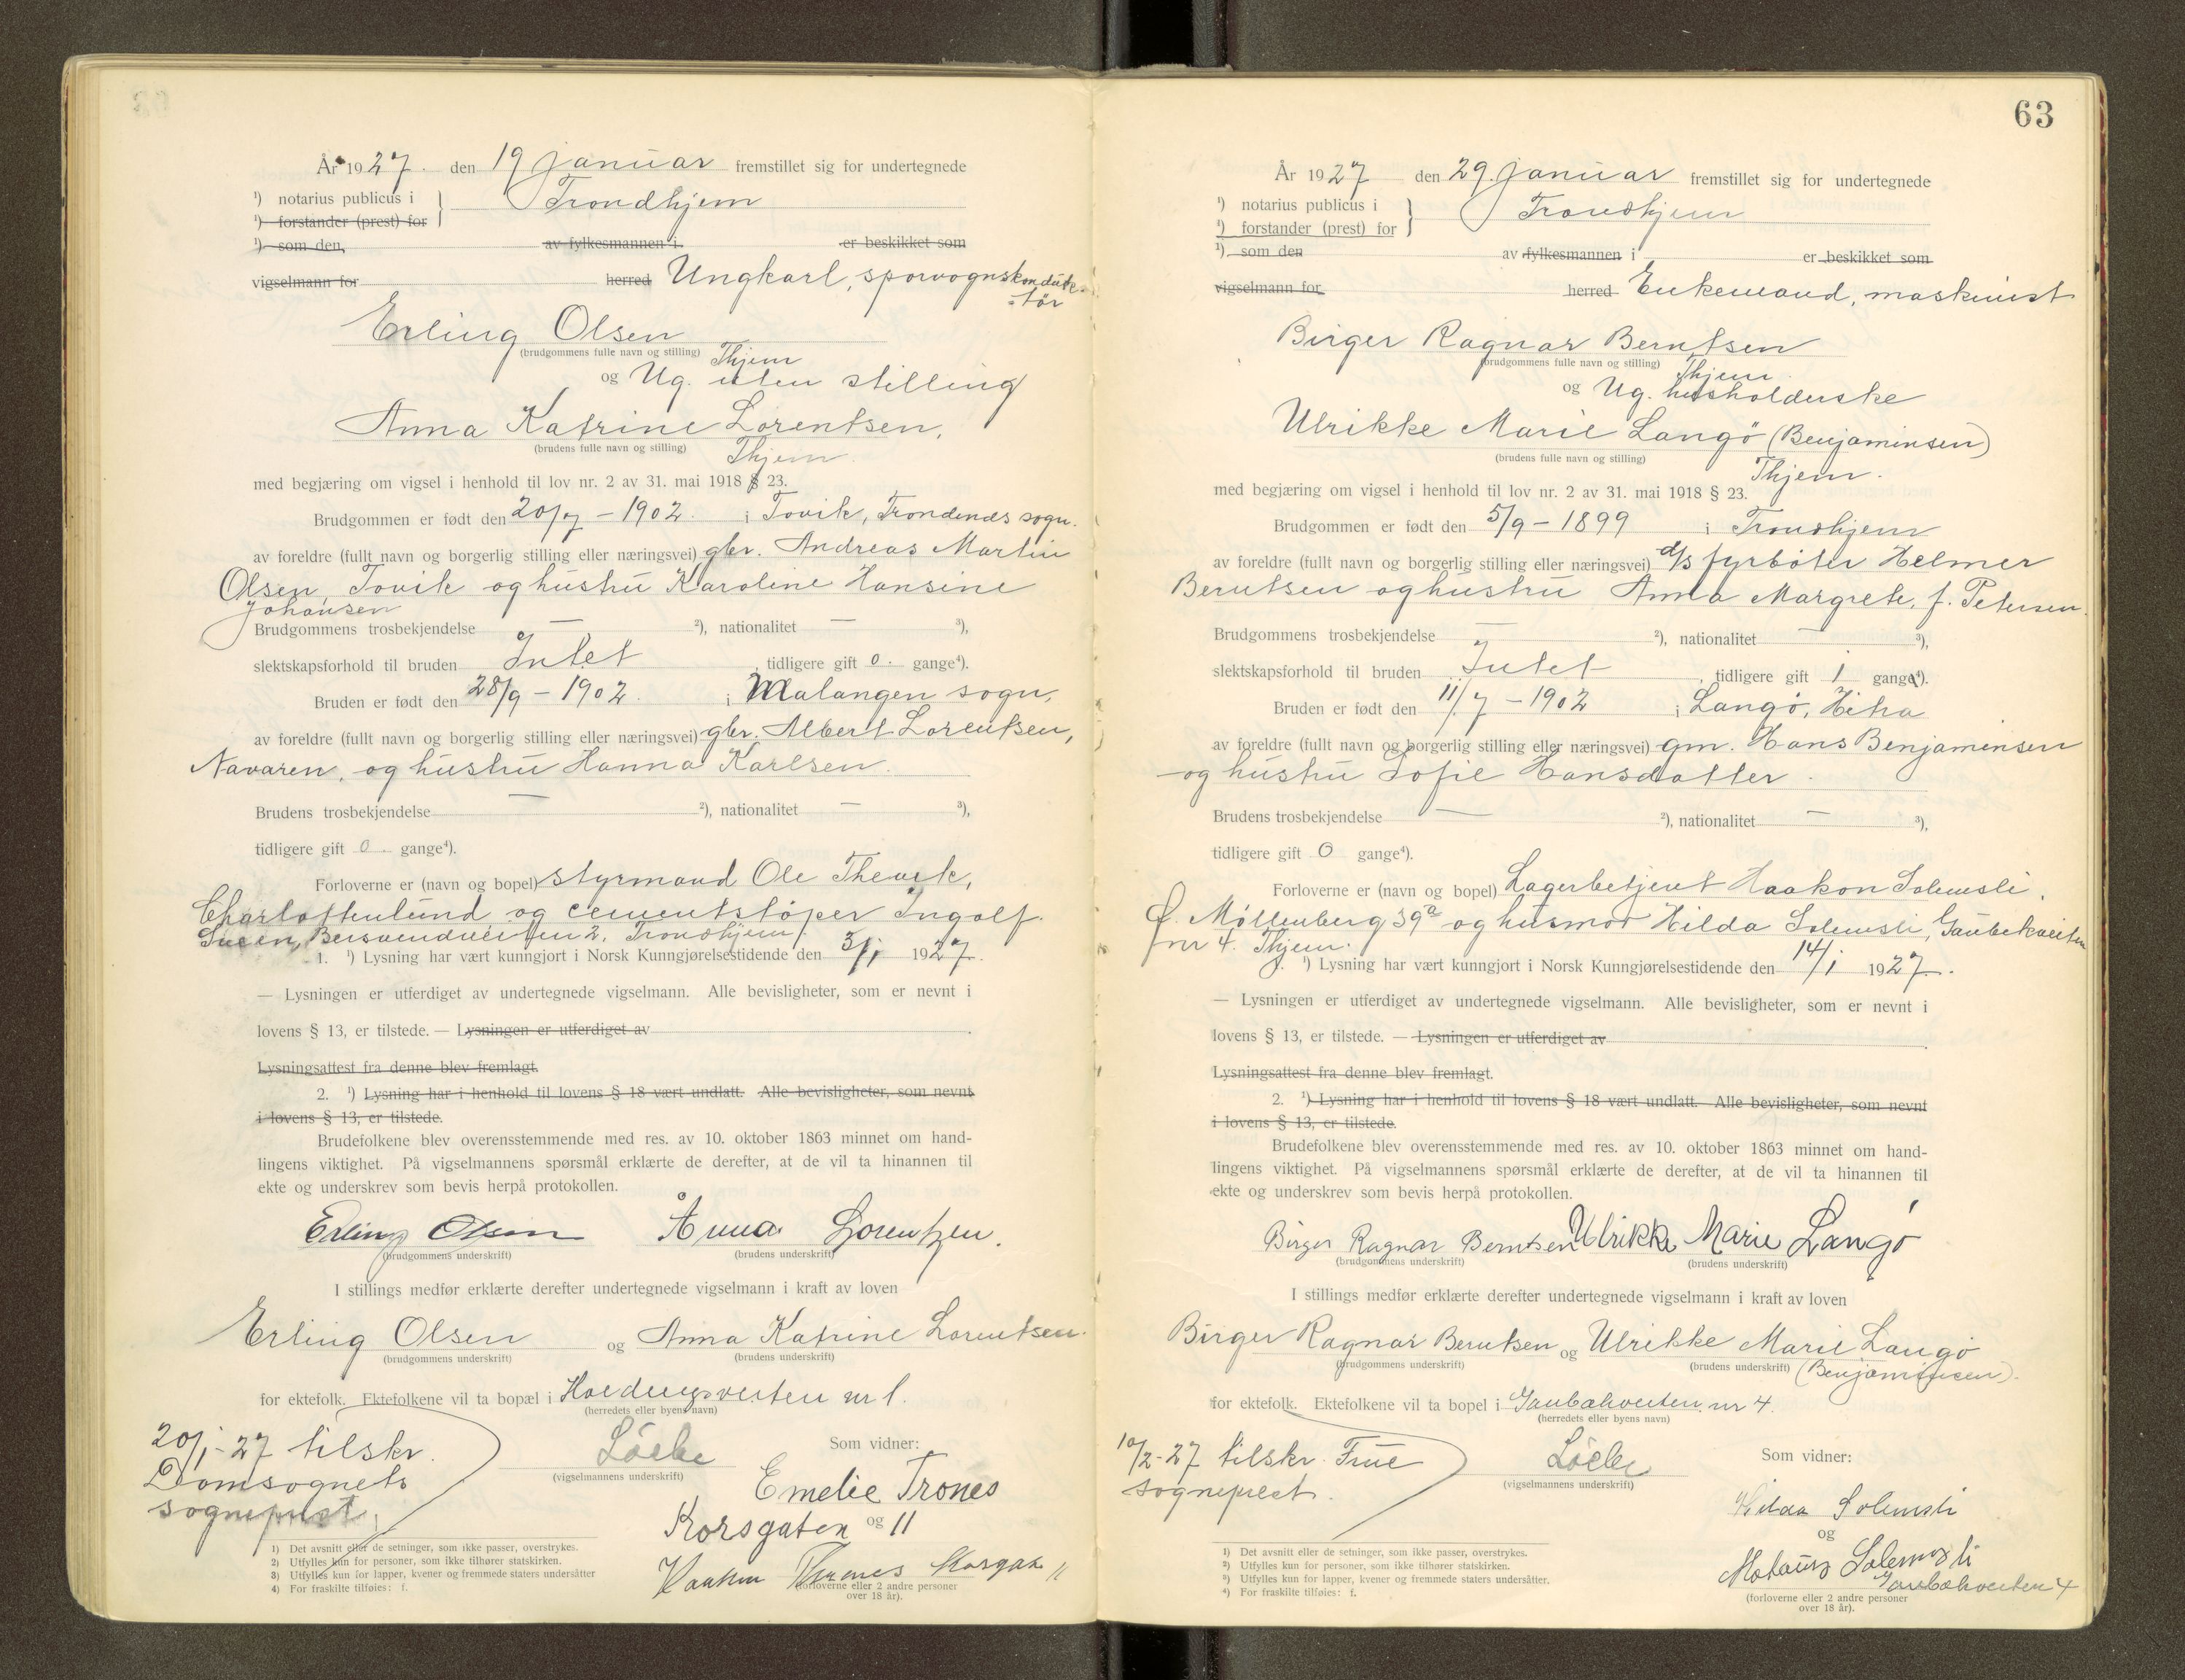 År 1927. den 19 januar fremstillet sig for undertegnede
¹) notarius publicus i Trondhjem
¹) forstander (prest) for
¹) som den, av fylkesmannen i er beskikket som
vigselmann for herred Ungkarl, sporvognskonduk-
=tør
Erling Olsen
(brudgommens fulle navn og stilling) Thjem
og Ug. uten stilling
Anna Katrine Lorentsen,
(brudens fulle navn og stilling) Thjem.
med begjæring om vigsel i henhold til lov nr. 2 av 31. mai 1918 § 23.
Brudgommen er født den 20/7 - 1902. i Tovik, Trondenes sogn.
av foreldre (fullt navn og borgerlig stilling eller næringsvei) gbr. Andreas Martin
Olsen, Tovik og hustru Karoline Hansine
Johansen
Brudgommens trosbekjendelse — ²), nationalitet — ³),
slektskapsforhold til bruden Intet, tidligere gift 0. gange⁴).
Bruden er født den 28/9 - 1902. i Malangen sogn,
av foreldre (fullt navn og borgerlig stilling eller næringsvei) gbr. Albert Lorentsen,
Navaren, og hustru Hanna Karlsen.
Brudens trosbekjendelse — ²), nationalitet — ³),
tidligere gift 0. gange⁴).
Forloverne er (navn og bopel) styrmand Ole
Charlottenlund og cementstøper Ingolf
2, Trondhjem
1. ¹) Lysning har vært kunngjort i Norsk Kunngjørelsestidende den 3/1 1927.
— Lysningen er utferdiget av undertegnede vigselmann. Alle bevisligheter, som er nevnt i
lovens § 13, er tilstede. — Lysningen er utferdiget av .
Lysningsattest fra denne blev fremlagt.
2. ¹) Lysning har i henhold til lovens § 18 vært undlatt. Alle bevisligheter, som nevnt
i lovens § 13, er tilstede.
Brudefolkene blev overensstemmende med res. av 10. oktober 1863 minnet om hand-
lingens viktighet. På vigselmannens spørsmål erklærte de derefter, at de vil ta hinannen til
ekte og underskrev som bevis herpå protokollen.
Erling Olsen Anna Lorentzen.
(brudgommens underskrift) (brudens underskrift)
I stillings medfør erklærte derefter undertegnede vigselmann i kraft av loven
Erling Olsen og Anna Katrine Lorentsen.
(brudgommens underskrift) (brudens underskrift)
for ektefolk. Ektefolkene vil ta bopæl i nr 1.
(herredets eller byens navn)
20/1-27 tilskr.
Domsognets
sogneprest.
(vigselmannens underskrift)
Som vidner:
Emelie Trones
Korsgaten og 11
Haakon Korsgat 11
(forloverne eller 2 andre personer
over 18 år).
1) Det avsnitt eller de setninger, som ikke passer, overstrykes.
2) Utfylles kun for personer, som ikke tilhører statskirken.
3) Utfylles kun for lapper, kvener og fremmede staters undersåtter
4) For fraskilte tilføies: f.
63
År 1927 den 29. januar fremstillet sig for undertegnede
¹) notarius publicus i Trondhjem
¹) forstander (prest) for
¹) som den av fylkesmannen i er beskikket som
vigselmann for herred Enkemand, maskinist
Birger Ragnar Berntsen
(brudgommens fulle navn og stilling) Thjem.
og Ug. husholderske
Ulrikke Marie Langö (Benjaminsen)
(brudens fulle navn og stilling) Thjem.
med begjæring om vigsel i henhold til lov nr. 2 av 31. mai 1918 § 23.
Brudgommen er født den 5/9 - 1899 i Trondhjem
av foreldre (fullt navn og borgerlig stilling eller næringsvei) d/s fyrbøter Helmer
Berntsen og hustru Anna Margrete, f. Petersen.
Brudgommens trosbekjendelse — ²), nationalitet — ³),
slektskapsforhold til bruden Intet, tidligere gift 1 gange⁴).
Bruden er født den 11/7 - 1902 i Langö, Hitra
av foreldre (fullt navn og borgerlig stilling eller næringsvei) gm. Hans Benjaminsen
og hustru Sofie Hansdatter.
Brudens trosbekjendelse — ²), nationalitet — ³),
tidligere gift 0 gange⁴).
Forloverne er (navn og bopel) Lagerbetjent Haakon Solemsli,
Ø. Møllenberg 39a og husmor Hilda Solemsli, Gaubekveiten
nr 4. Thjem.
1. ¹) Lysning har vært kunngjort i Norsk Kunngjørelsestidende den 14/1 1927.
— Lysningen er utferdiget av undertegnede vigselmann. Alle bevisligheter, som er nevnt i
lovens § 13, er tilstede. — Lysningen er utferdiget av .
Lysningsattest fra denne blev fremlagt.
2. ¹) Lysning har i henhold til lovens § 18 vært undlatt. Alle bevisligheter, som nevnt
i lovens § 13, er tilstede.
Brudefolkene blev overensstemmende med res. av 10. oktober 1863 minnet om hand-
lingens viktighet. På vigselmannens spørsmål erklærte de derefter, at de vil ta hinannen til
ekte og underskrev som bevis herpå protokollen.
Birger Ragnar Berntsen Ulrikke Marie Langø
(brudgommens underskrift) (brudens underskrift)
I stillings medfør erklærte derefter undertegnede vigselmann i kraft av loven
Birger Ragnar Berntsen og Ulrikke Marie Langö
(brudgommens underskrift) (brudens underskrift) (Benjaminsen).
for ektefolk. Ektefolkene vil ta bopel i Gaubækveiten nr 4.
(herredets eller byens navn)
10/2-27 tilskr. Frue
sogneprest.
(vigselmannens underskrift)
Som vidner:
Hilda Solemsli
og
Solemsli
Gaubækveiten 4
(forloverne eller 2 andre personer
over 18 år).
¹) Det avsnitt eller de setninger, som ikke passer, overstrykes.
²) Utfylles kun for personer, som ikke tilhører statskirken.
³) Utfylles kun for lapper, kvener og fremmede staters undersåtter.
⁴) For fraskilte tilføies: f.